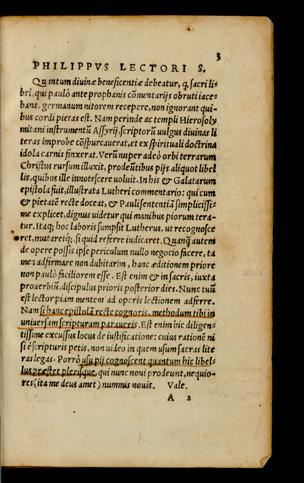 3
PHILIPPVS LECTORI S.
Quantum diuinæ beneficentiæ debeatur, q, sacri li=
bri, qui paulò ante prophanis cōmentarijs obruti iace=
bant, germanum nitorem recepere, non ignorant qui=
bus cordi pietas est. Nam perinde ac templi Hierosoly
mitani instrumentū Assyrij, scriptorū uulgus diuinas li
teras improbe cōspurcauerat, et ex spirituali doctrina
idola carnis finxerat. Verū nuper adeò orbi terrarum
Christus rursum illuxit, prodeūtibus pijs aliquot libel
lis, quibus ille innotescere uoluit. In his & Galatarum
epistola fuit, illustrata Lutheri commentario: qui cum
& pietatē recte doceat, & Pauli sententiā simplicissi=
me explicet, dignus uidetur qui manibus piorum tera=
tur. Itaq; hoc laboris sumpsit Lutherus, ut recognosce
ret, mutaretq; si quid referre iudicaret. Quanq̃ autem
de opere possis ipse periculum nullo negocio facere, ta
men adfirmare non dubitarim, hanc æditionem priore
non paulò feliciorem esse. Est enim & in sacris, iuxta
prouerbiū, discipulus prioris posterior dies. Nunc tuū
est lector piam mentem ad operis lectionem adferre.
Nam si hanc epistolā recte cognoris, methodum tibi in
uniuersam scripturam paraueris. Est enim hic diligen=
tissime excussus locus de iustificatione: cuius rationē ni
si è scripturis petis, non uideo in quem usum sacras lite
ras legas. Porrò usu pij cognoscent quantum hic libel=
lus præstet plerisque, qui nunc noui prodeunt, nequio=
res (ita me deus amet) nummis nouis. Vale.
A 2